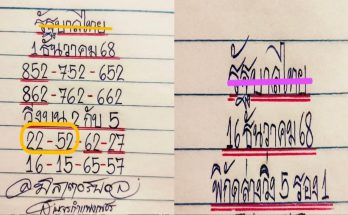 รัฐบาลไทย
1 ธันวาคม 68
852-752-652
862-762-662
วิ่งบน 2 กับ 5
22-52-62-27
16-15-65-57
รัฐบาลไทย
16 ธันวาคม 68
พิกัดล่างวิ่ง 5 รอง 1